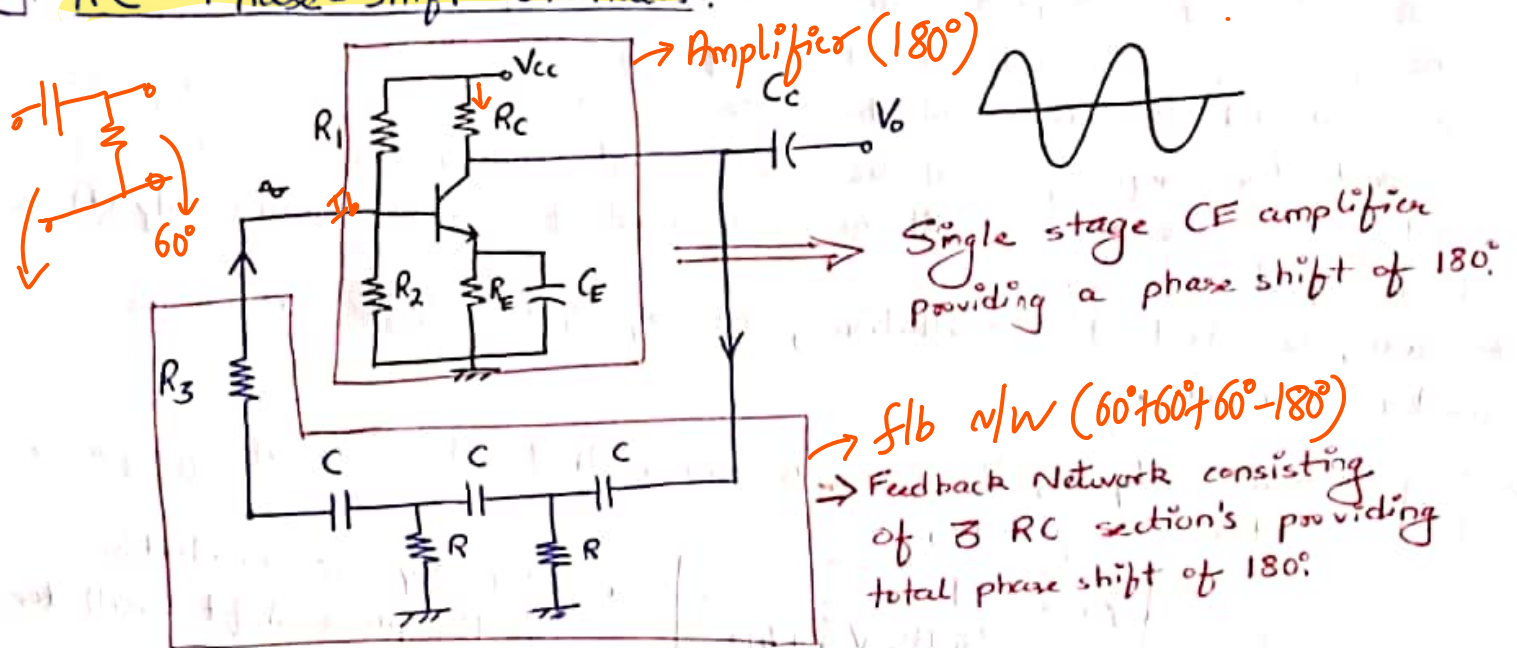 RC Phase shift
Amplifier (180°)
Vcc
R1
RC
Cc
Vo
60°
Ib
R2
RE
CE
Single stage CE amplifier
providing a phase shift of 180°.
R3
f/b N/W (60°+60°+60°-180°)
C
C
C
⇒ Feedback Network consisting
of 3 RC section's providing
total phase shift of 180°.
R
R